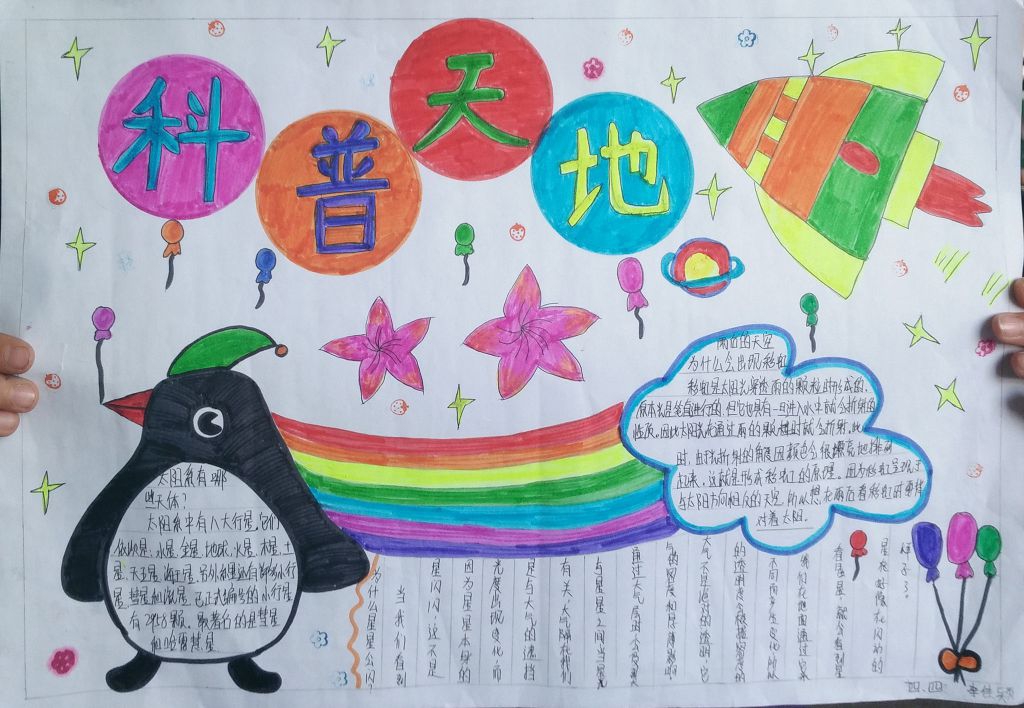 科普天地
雨后的天空
为什么会出现彩虹
彩虹是太阳光穿透雨的颗粒时形成的，
原本光是笔直进行的，但它也具有一旦进入水中就会折射的
性质。因此太阳光在通过雨的颗粒时就会折射。此
时，由于折射的角度因颜色会很漂亮地排列
起来，这就是形成彩虹的原理。因为彩虹呈现于
与太阳方向相反的天空，所以想在雨后看彩虹时要背
对着太阳。
太阳系有哪
些天体？
太阳系中有八大行星。它们
依次是：水星、金星、地球、火星、木星、土
星、天王星、海王星。另外
星、彗星和流星。已正式编号的小行星
有
颗。
著名的是彗星
和哈雷彗星
为什么星星会闪？
当我们看到
星闪闪，这不是
因为星星本身的
光度出现变化，而
是与大气的遮挡
有关。大气隔在我们
与星星之间，当星光
通过大气层时，会受到大
气的密度和厚薄影响。
大气不是绝对的透明，它
的透明度会根据密度的
不同而产生变化。所以
我们在地面透过它来
看星星，就会看到星
星好像在闪动的
样子了。
四、四 李佳